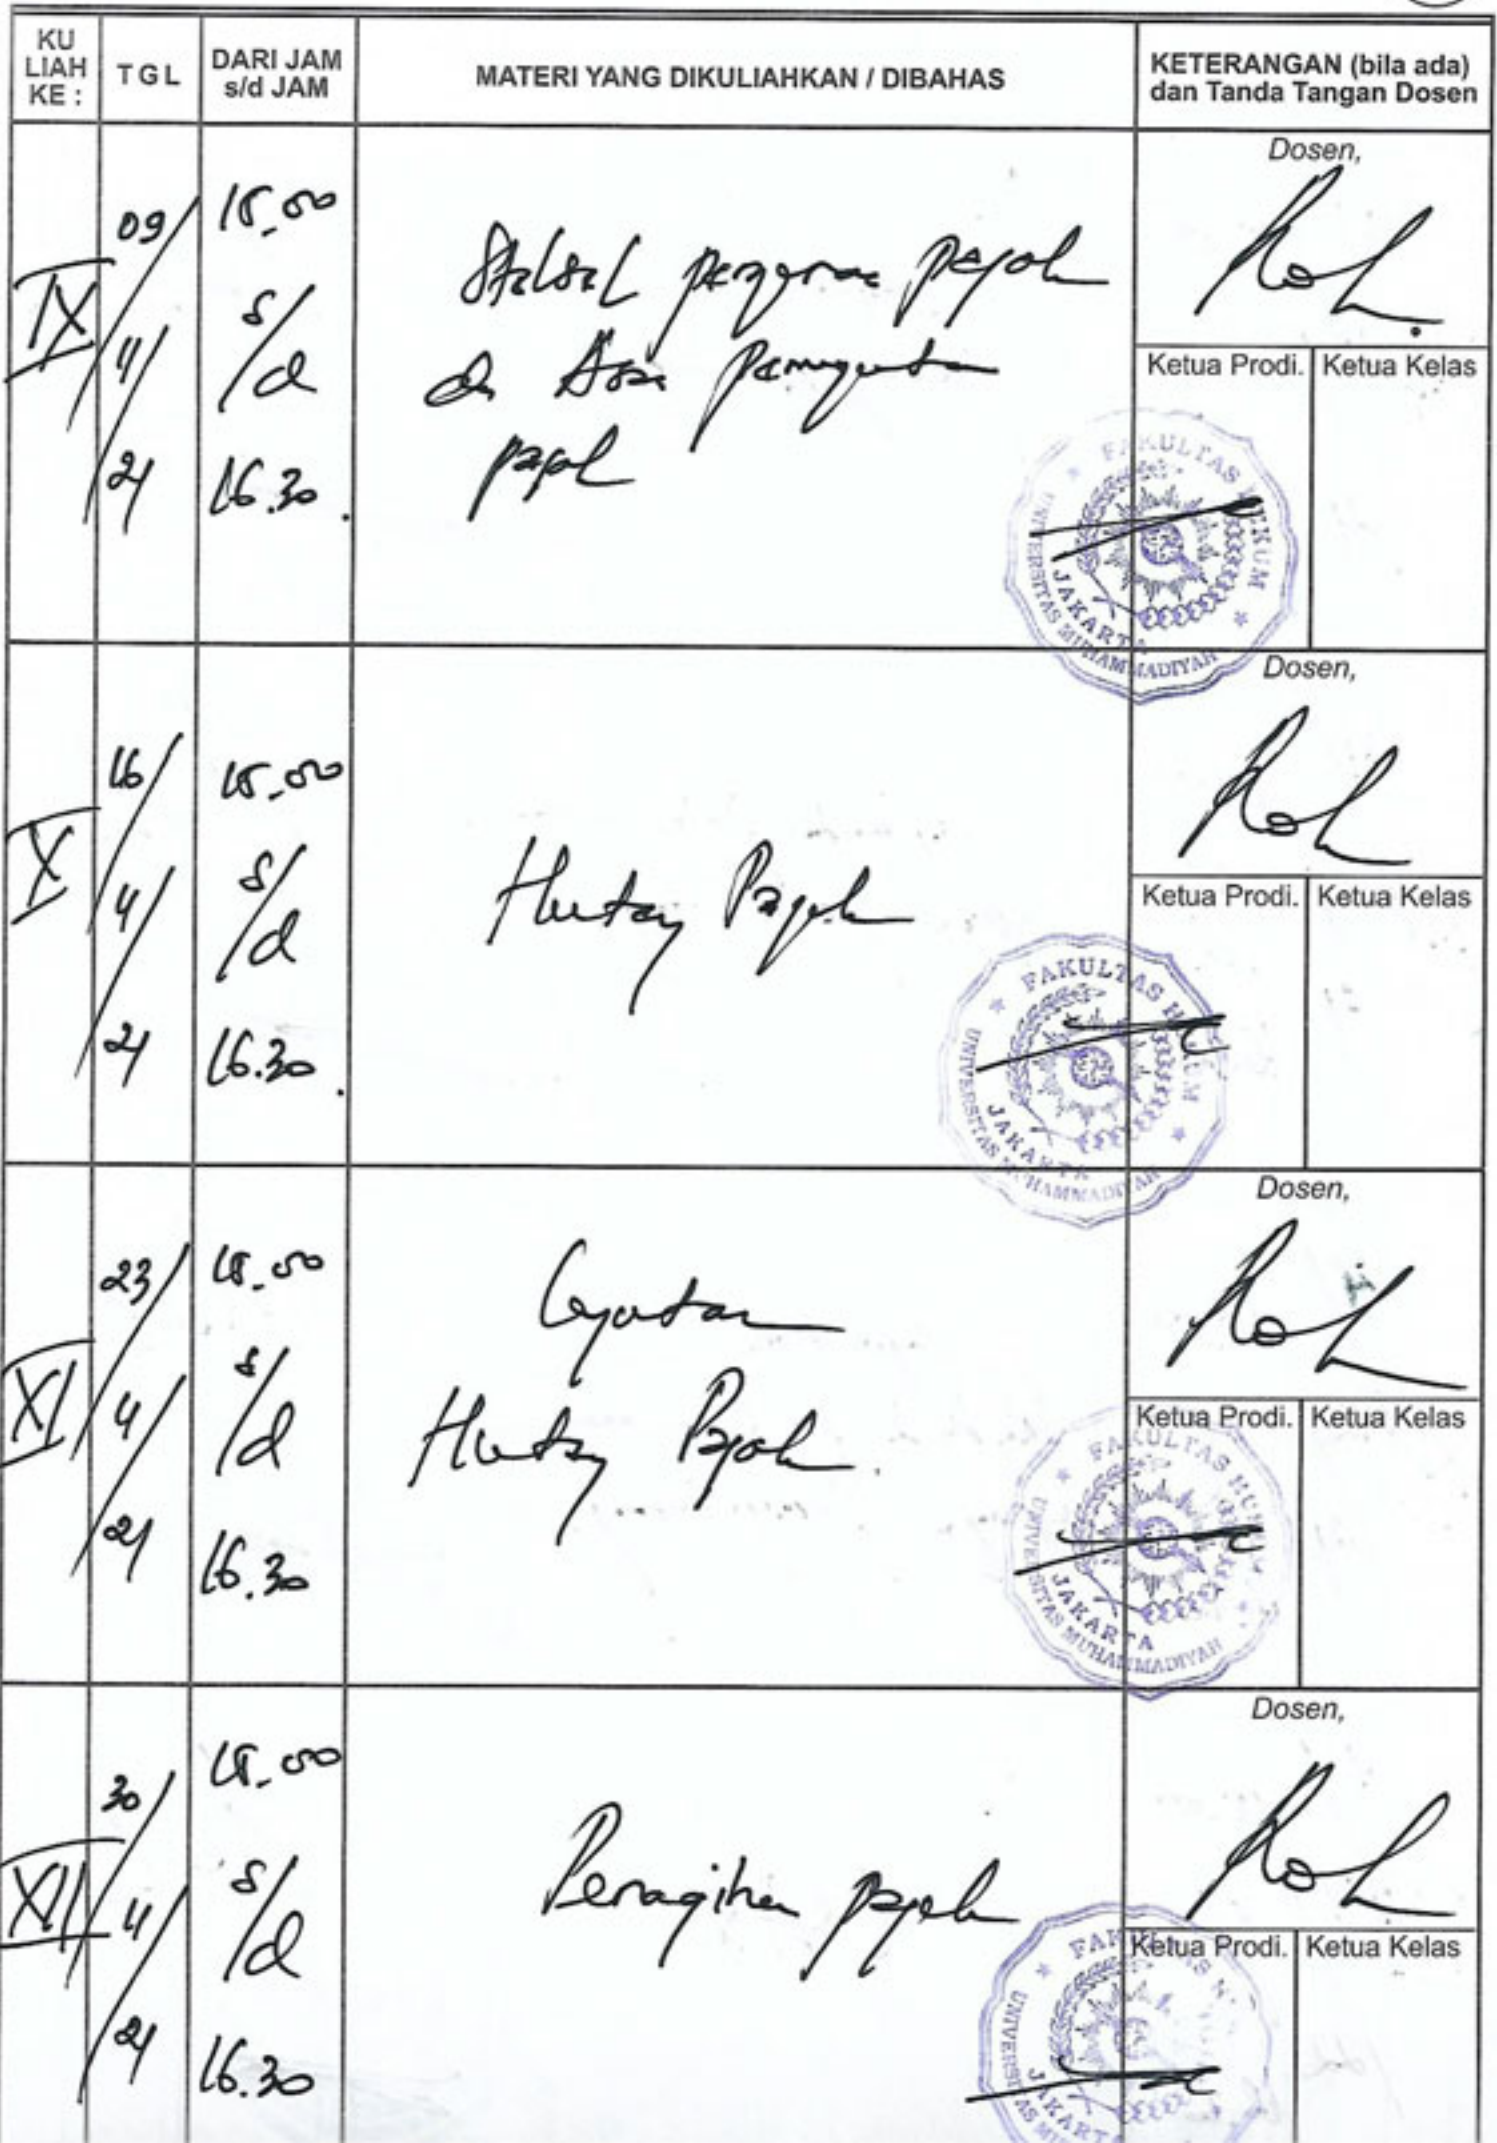 KU LIAH KE :
TGL
DARI JAM s/d JAM
MATERI YANG DIKULIAHKAN / DIBAHAS
KETERANGAN (bila ada) dan Tanda Tangan Dosen
IX
09/4/21
15.00
s/d
16.30
pajak
pajak
Dosen,
Ketua Prodi.
Ketua Kelas
FAKULTAS HUKUM
UNIVERSITAS MUHAMMADIYAH
JAKARTA
X
16/4/21
15.00
s/d
16.30
Hutang Pajak
Dosen,
Ketua Prodi.
Ketua Kelas
FAKULTAS HUKUM
UNIVERSITAS MUHAMMADIYAH
JAKARTA
XI
23/4/21
15.00
s/d
16.30
Lanjutan
Hutang Pajak
Dosen,
Ketua Prodi.
Ketua Kelas
FAKULTAS HUKUM
UNIVERSITAS MUHAMMADIYAH
JAKARTA
XII
30/4/21
15.00
s/d
16.30
Penagihan pajak
Dosen,
Ketua Prodi.
Ketua Kelas
JAKARTA